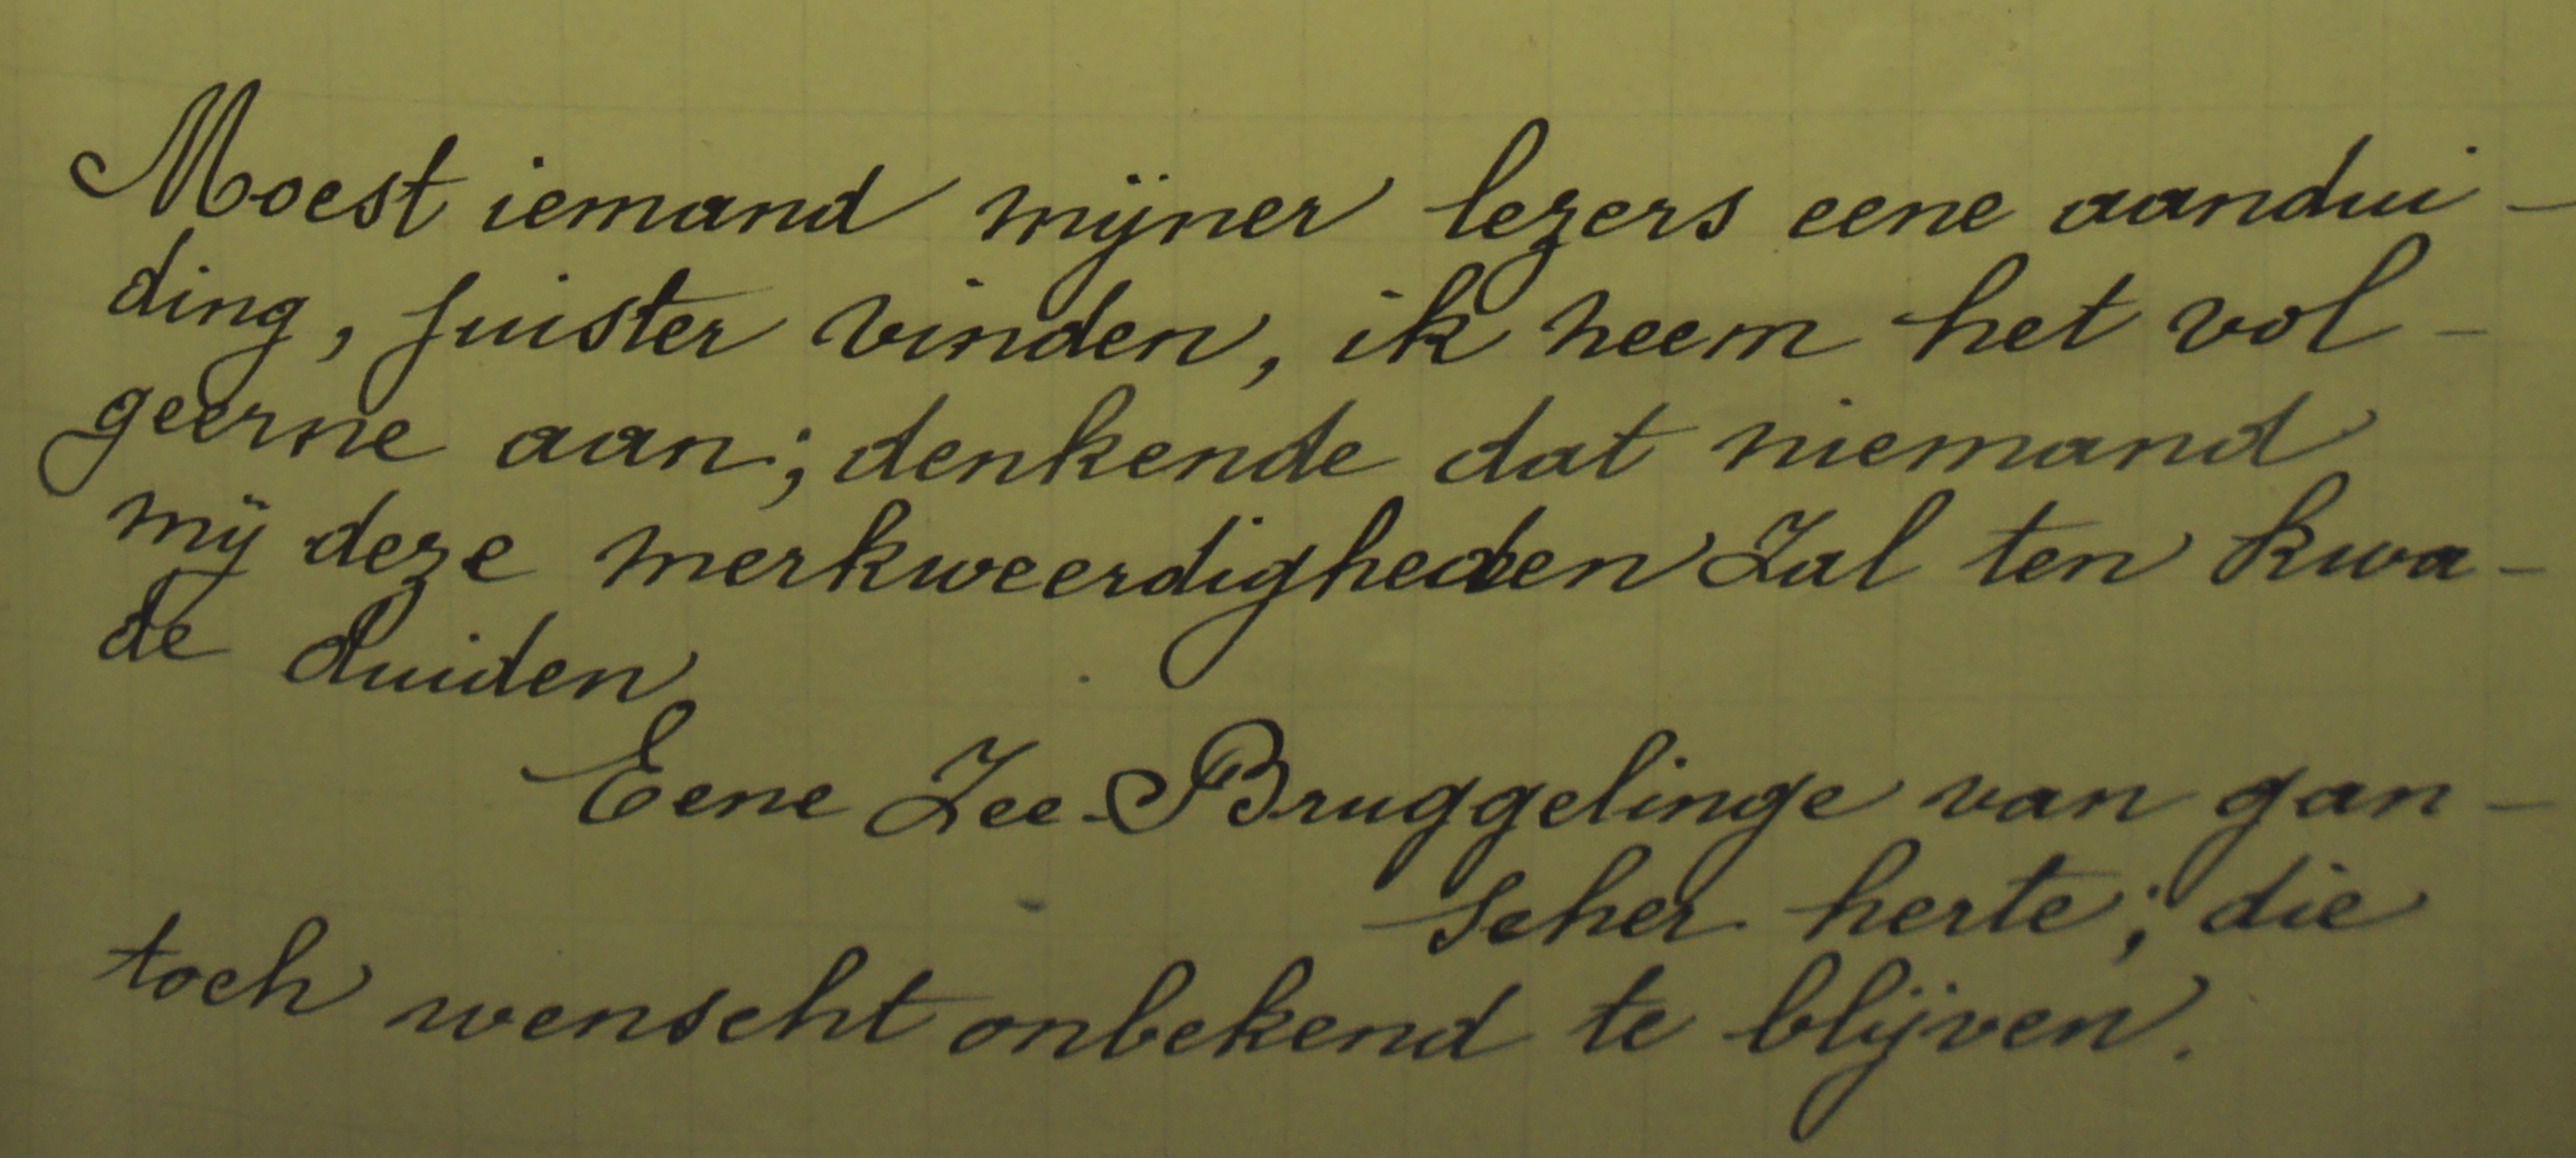 Moest iemand mijner lezers eene aandui-
ding, juister vinden, ik neem het vol-
geerne aan; denkende dat niemand
mij deze merkweerdigheden Zal ten kwa-
de duiden.
Eene Zee-Bruggelinge van gan-
scher herte; die
toch wenscht onbekend te blijven.